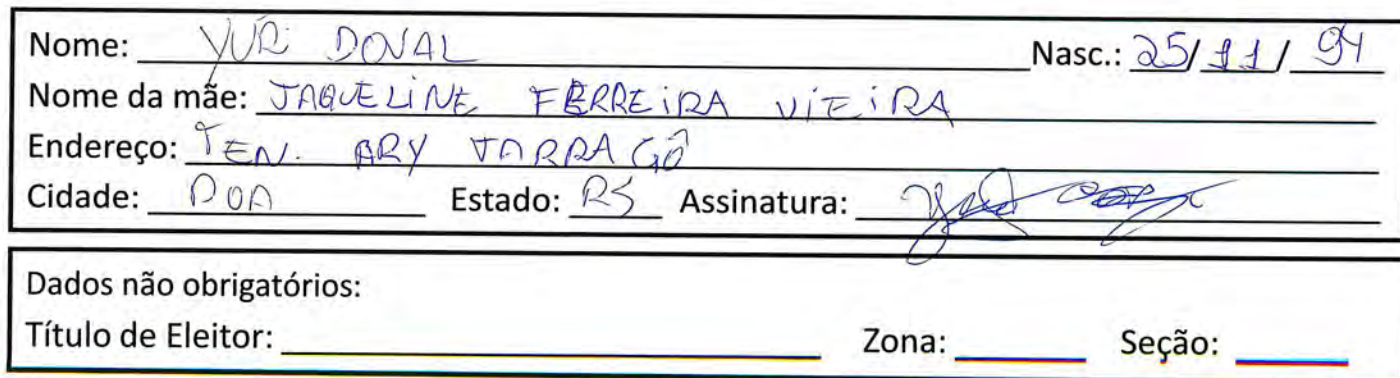 Nome: YURI DOVAL Nasc.: 25/11/94
Nome da mãe: JAQUELINE FERREIRA VIEIRA
Endereço: TEN. ARY TARRAGÔ
Cidade: POA Estado: RS Assinatura:
Dados não obrigatórios:
Título de Eleitor: Zona: Seção: